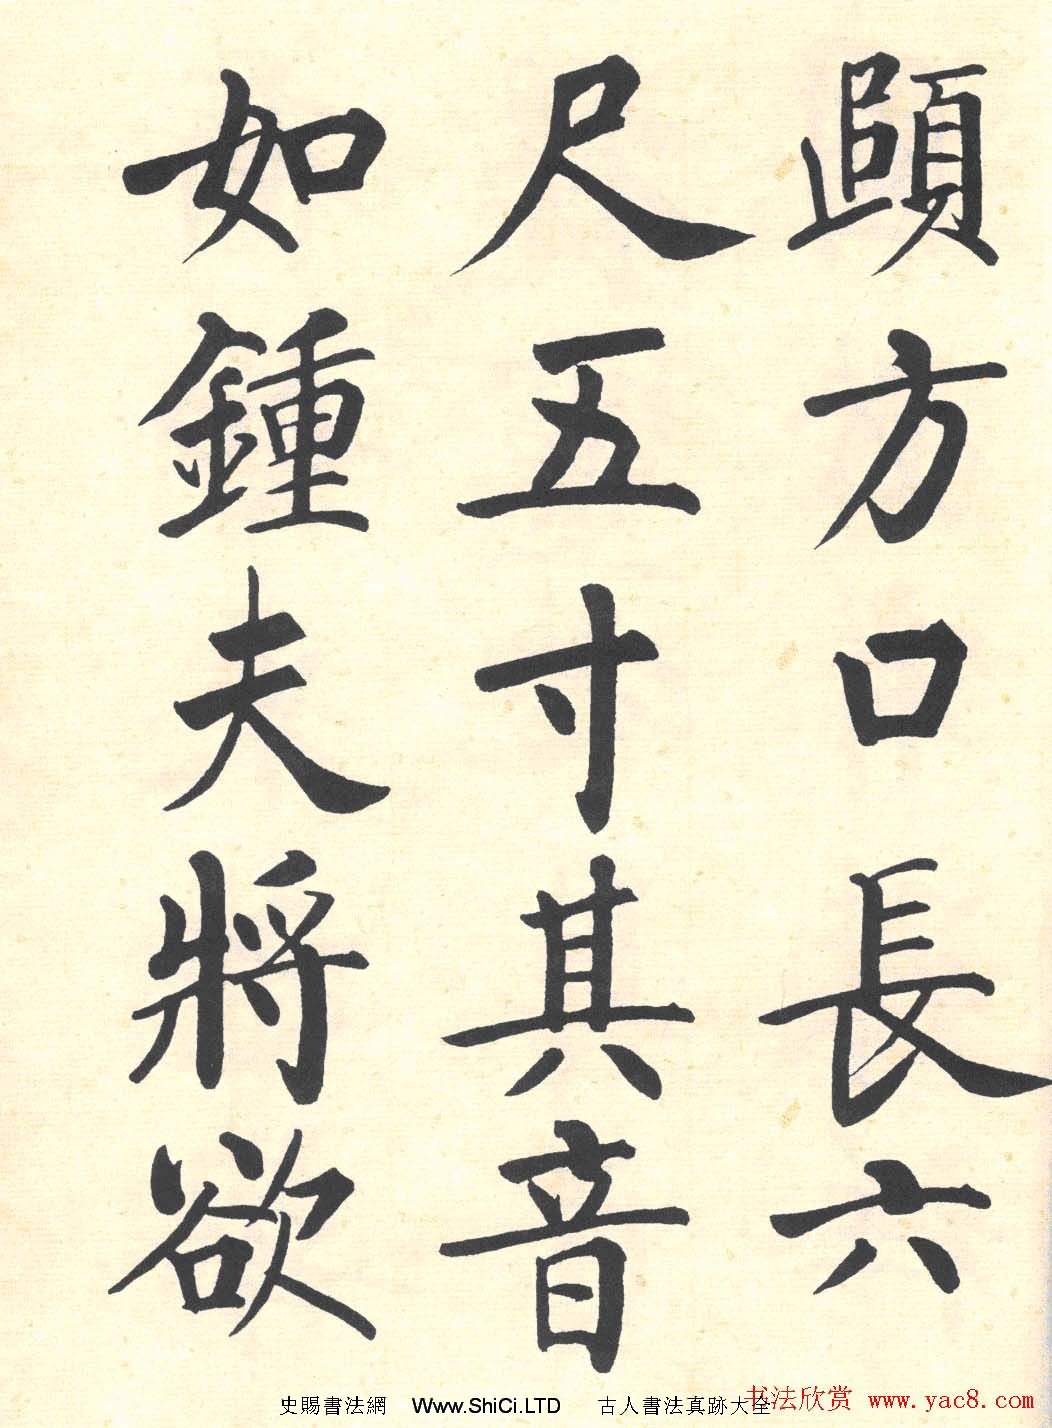 頤方口長六
尺五寸其音
如鍾夫將欲
史賜書法網 Www.ShiCi.LTD 古人書法真跡大全
书法欣赏 www.yac8.com